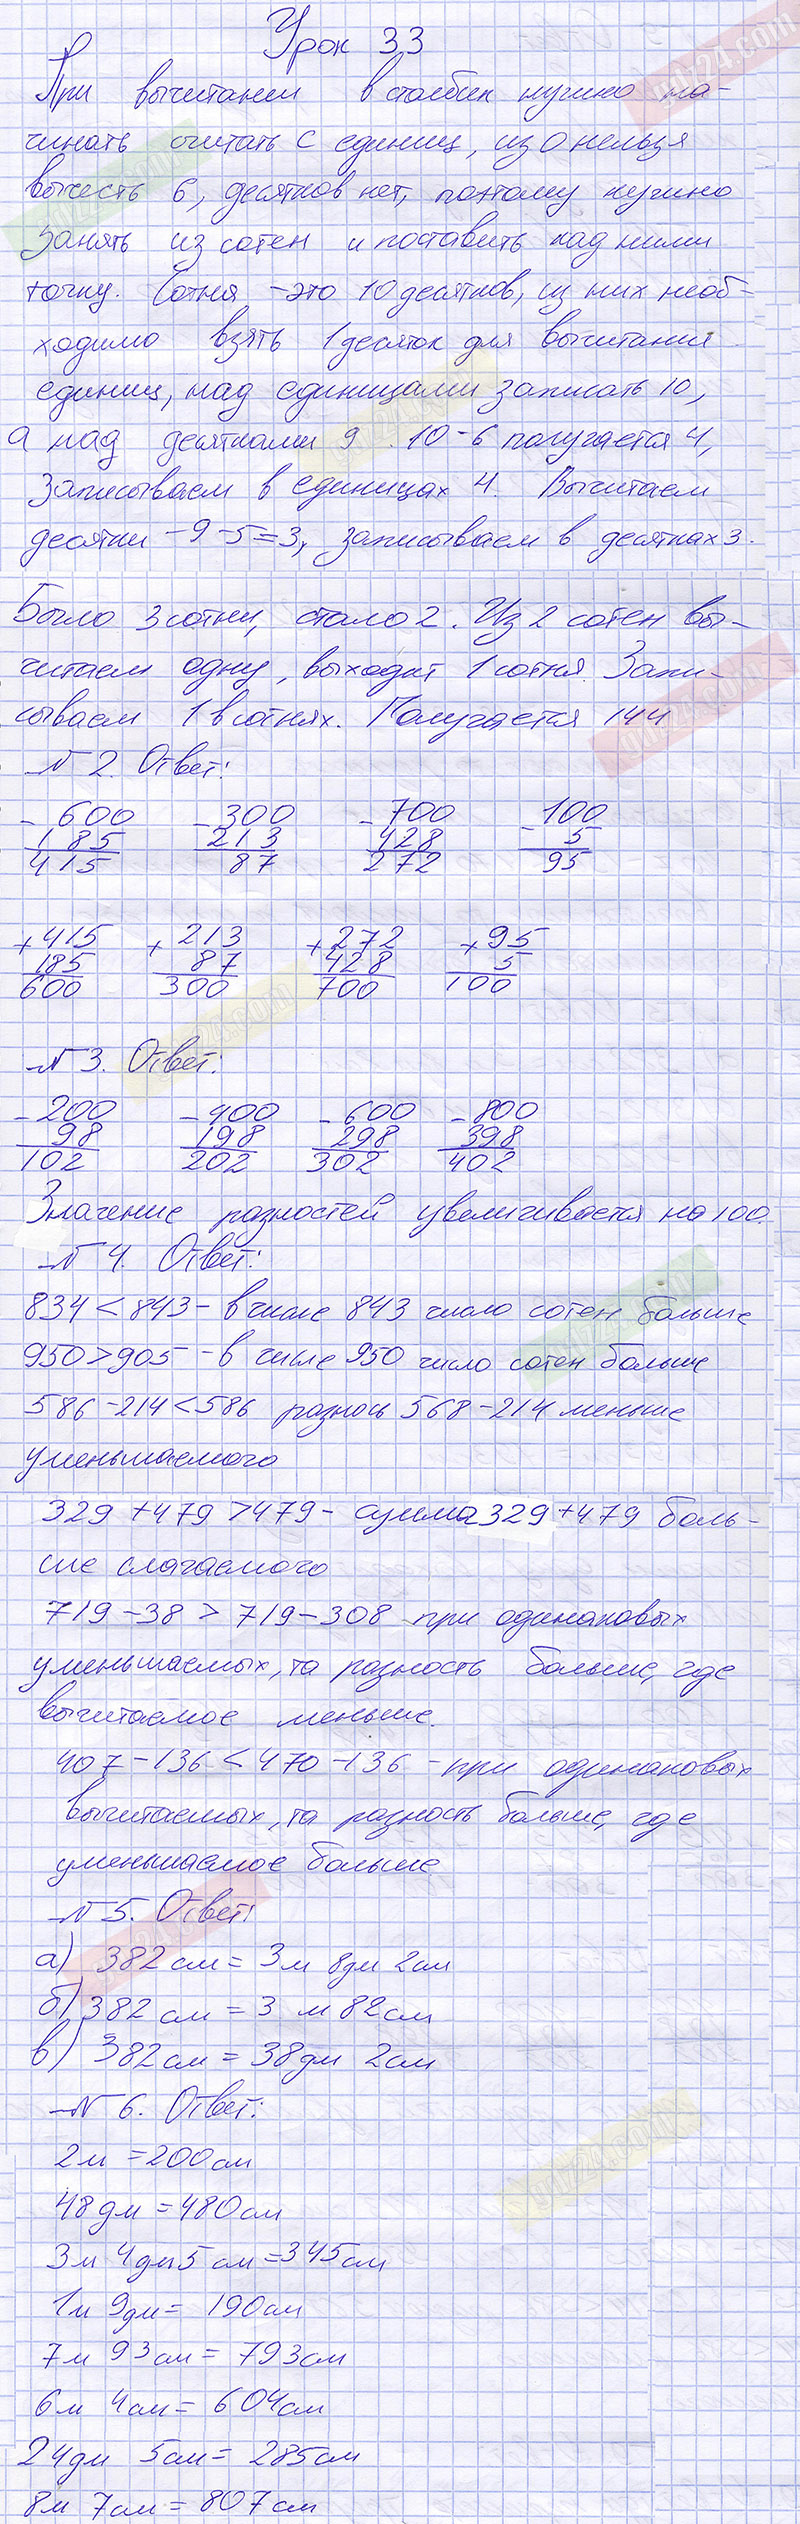 Урок 33
При вычитании в столбик нужно на-
чинать считать с единиц, из 0 нельзя
вычесть 6, десятков нет, поэтому нужно
занять из сотен и поставить над ними
точку. Сотня - это 10 десятков, из них необ-
ходимо взять 1 десяток для вычитания
единиц, над единицами записать 10,
а над десятками 9. 10-6 получается 4,
записываем в единицах 4. Вычитаем
десятки - 9-5=3, записываем в десятках 3.
Было 3 сотни, стало 2. Из 2 сотен вы-
читаем одну, выходит 1 сотня. Запи-
сываем 1 в сотнях. Получается 144
N 2. Ответ:
- 600 - 300 - 700 - 100
185 213 428 5
415 87 272 95
+ 415 + 213 + 272 + 95
185 87 428 5
600 300 700 100
N 3. Ответ:
- 200 - 400 - 600 - 800
98 198 298 398
102 202 302 402
Значение разностей увеличивается на 100.
N 4. Ответ:
834 < 843 - в числе 843 число сотен больше
950 > 905 - в числе 950 число сотен больше
586 - 214 < 586 разнось 568 - 214 меньше
уменьшаемого
329 + 479 > 479 - сумма 329 + 479 боль-
ше слагаемого
719 - 38 > 719 - 308 при одинаковых
уменьшаемых, та разность больше, где
вычитаемое меньше.
407 - 136 < 470 - 136 - при одинаковых
вычитаемых, та разность больше, где
уменьшаемое больше
N 5. Ответ:
а) 382 см = 3 м 8 дм 2 см
б) 382 см = 3 м 82 см
в) 382 см = 38 дм 2 см
N 6. Ответ:
2 м = 200 см
48 дм = 480 см
3 м 4 дм 5 см = 345 см
1 м 9 дм = 190 см
7 м 93 см = 793 см
6 м 4 см = 604 см
24 дм 5 см = 285 см
8 м 7 см = 807 см